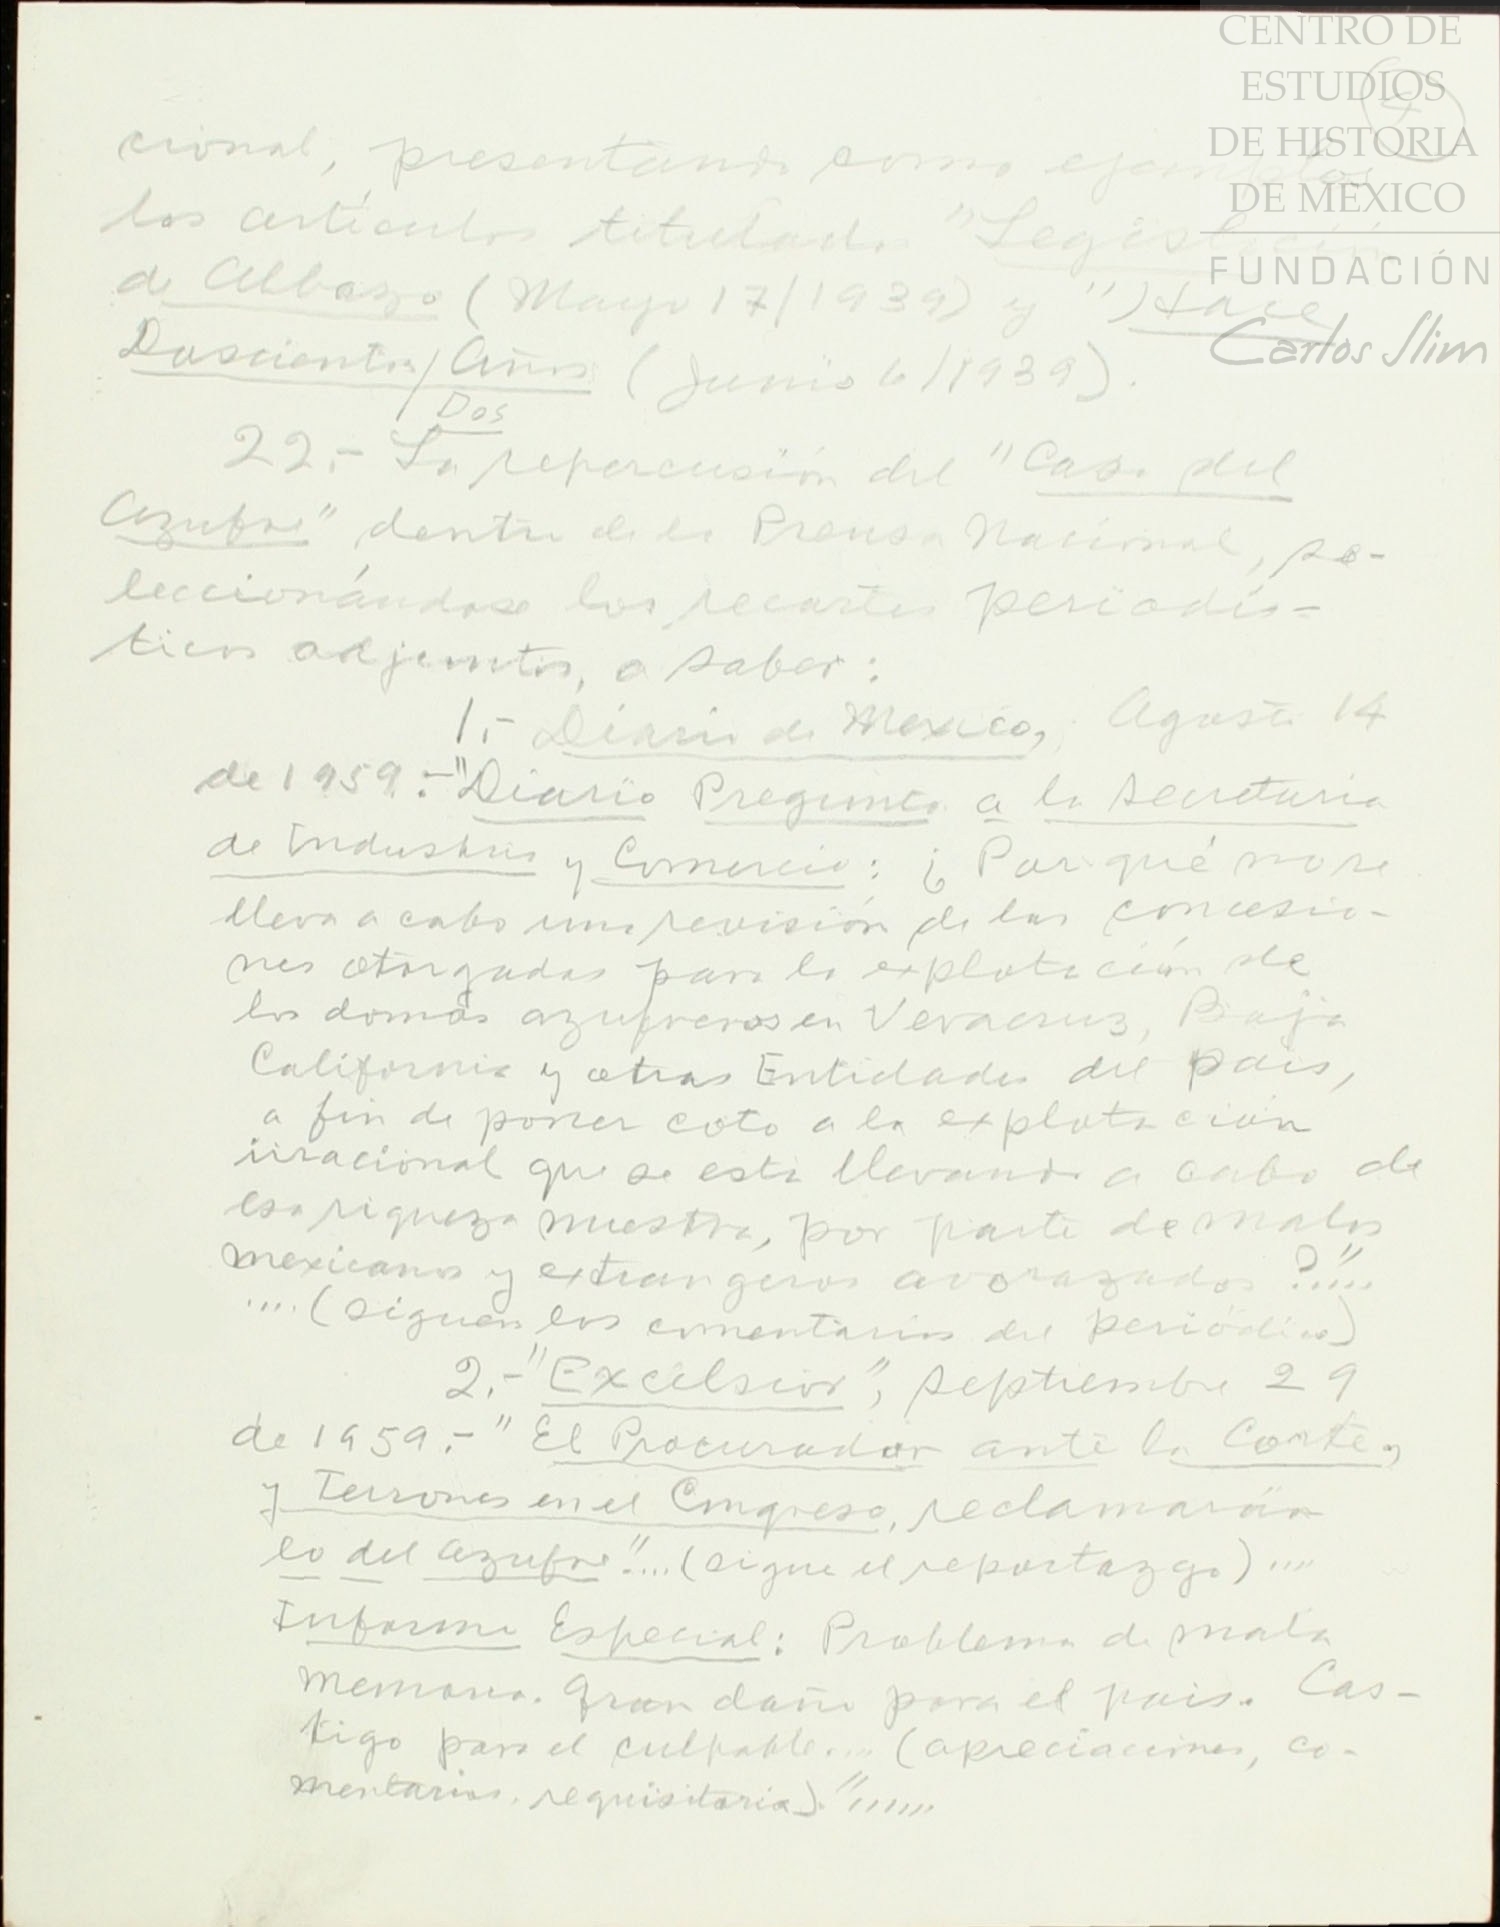 CENTRO DE
ESTUDIOS
DE HISTORIA
DE MÉXICO
FUNDACIÓN
Carlos Slim
cional, presentando como ejemplos
los artículos titulados "Legislación
de Albazo (Mayo 17/1939) y "Hace
Doscientos Años (Junio 6/1939).
Dos
22.- La repercusión del "Caso del
Azufre" dentro de la Prensa Nacional, se-
leccionándose los recortes periodís-
ticos adjuntos, a saber:
1.- Diario de Mexico, Agosto 14
de 1959.-"Diario Pregunta a la Secretaria
de Industria y Comercio: ¿Por qué no se
lleva a cabo una revisión de las concesio-
nes otorgadas para la explotación de
los domos azufreros en Veracruz, Baja
California y otras Entidades del pais,
a fin de poner coto a la explotación
irracional que se está llevando a cabo de
esa riqueza nuestra, por parte de malos
mexicanos y extrangeros avorazados?"....
....(siguen los comentarios del periódico)
2.-"Excelsior", Septiembre 29
de 1959.-"El Procurador ante la Corte,
y Terrones en el Congreso, reclamarán
lo del azufre"....(sigue el reportazgo)....
Informe Especial: Problema de mala
memoria. Gran daño para el pais. Cas-
tigo para el culpable.... (apreciaciones, co-
mentarios, requisitoria)."......